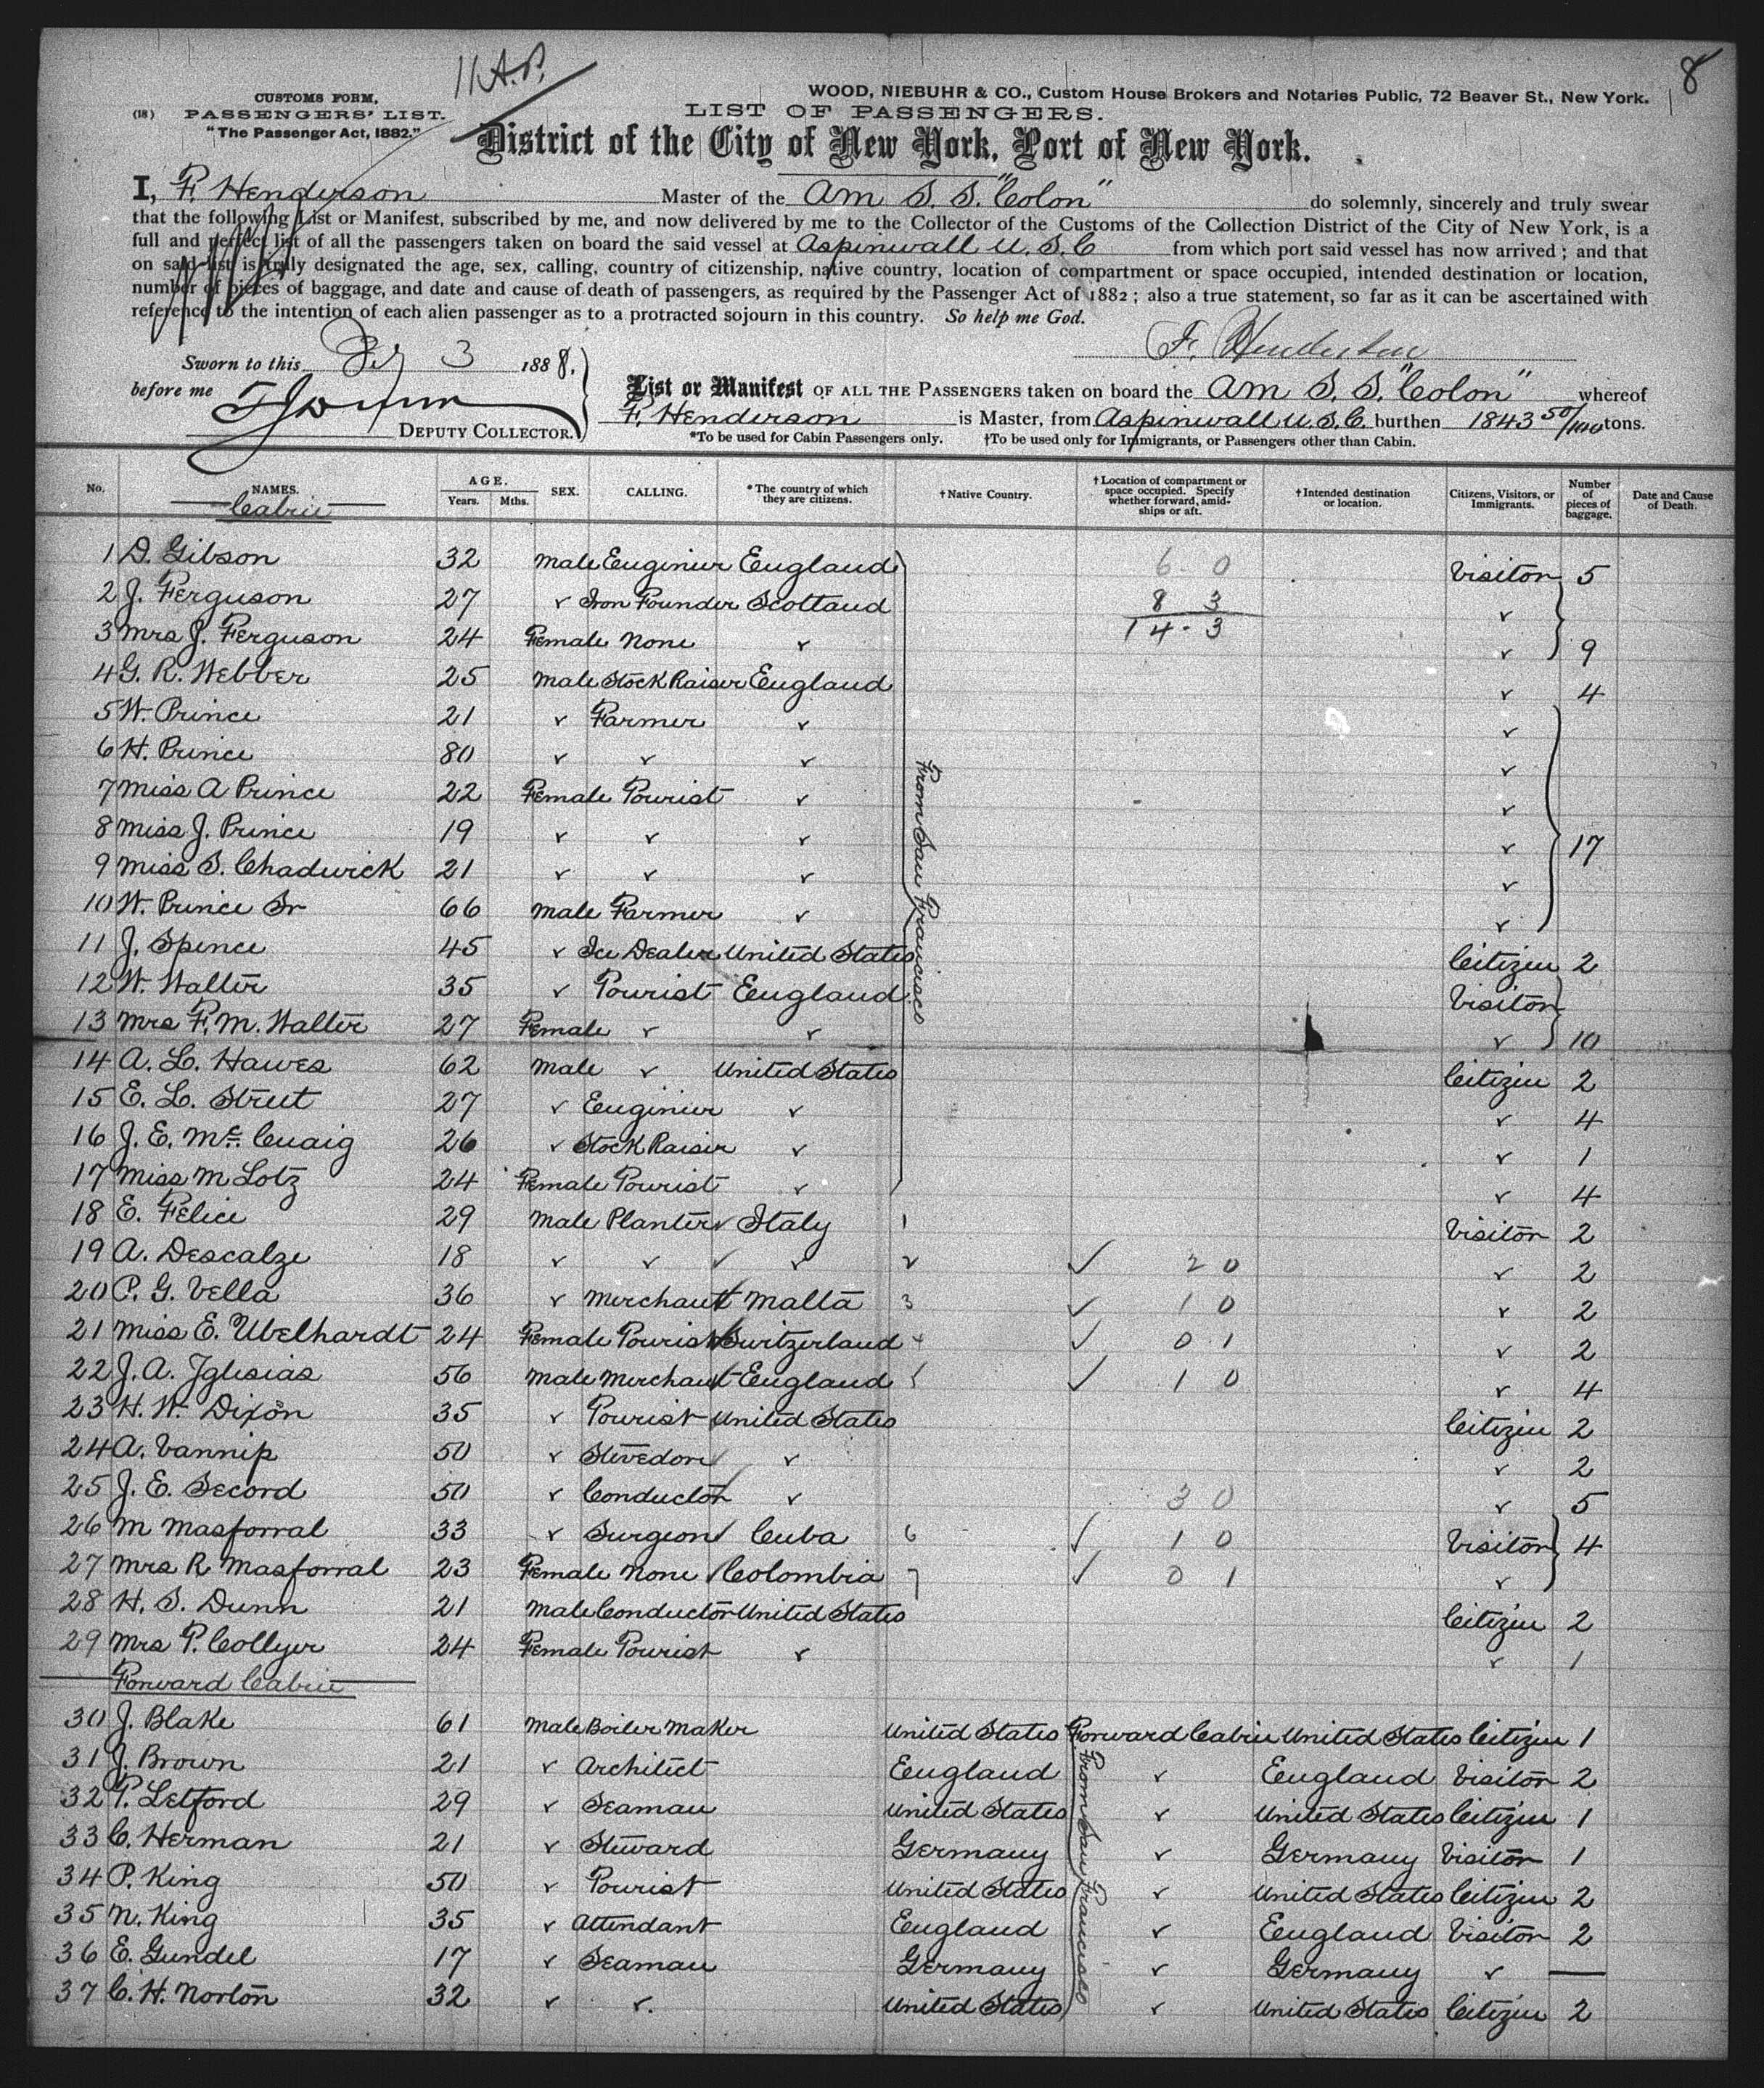 11 A.P.
8
WOOD, NIEBUHR & CO., Custom House Brokers and Notaries Public, 72 Beaver St., New York.
CUSTOMS FORM,
(18) PASSENGERS' LIST.
"The Passenger Act, 1882."
LIST OF PASSENGERS.
District of the City of New York, Port of New York.
I, F. Henderson Master of the Am S. S. "Colon" do solemnly, sincerely and truly swear
that the following List or Manifest, subscribed by me, and now delivered by me to the Collector of the Customs of the Collection District of the City of New York, is a
full and perfect list of all the passengers taken on board the said vessel at Aspinwall U. S. C from which port said vessel has now arrived; and that
on said list is truly designated the age, sex, calling, country of citizenship, native country, location of compartment or space occupied, intended destination or location,
number of pieces of baggage, and date and cause of death of passengers, as required by the Passenger Act of 1882; also a true statement, so far as it can be ascertained with
reference to the intention of each alien passenger as to a protracted sojourn in this country. So help me God.
F. Henderson
Sworn to this 3 1888.
before me
DEPUTY COLLECTOR.
List or Manifest OF ALL THE PASSENGERS taken on board the Am S. S. "Colon" whereof
F. Henderson is Master, from Aspinwall U.S.C. burthen 1843 50/100 tons.
*To be used for Cabin Passengers only. †To be used only for Immigrants, or Passengers other than Cabin.
No. NAMES. AGE. Years. Mths. SEX. CALLING. *The country of which they are citizens. †Native Country. †Location of compartment or space occupied. Specify whether forward, amidships or aft. †Intended destination or location. Citizens, Visitors, or Immigrants. Number of pieces of baggage. Date and Cause of Death.
Cabin
1 D. Gibson 32 Male Engineer England 6 0 Visitor 5
2 J. Ferguson 27 ✓ Iron Founder Scotland 8 3 ✓
3 Mrs J. Ferguson 24 Female None ✓ 14-3 ✓ 9
4 G. R. Webber 25 Male Stock Raiser England ✓ 4
5 W. Prince 21 ✓ Farmer ✓ ✓
6 H. Prince 80 ✓ ✓ ✓ ✓
7 Miss A Prince 22 Female Tourist ✓ ✓
8 Miss J. Prince 19 ✓ ✓ ✓ ✓ 17
9 Miss S. Chadwick 21 ✓ ✓ ✓ ✓
10 W. Prince Sr 66 Male Farmer ✓ ✓
From San Francisco
11 J. Spence 45 ✓ Ice Dealer United States Citizen 2
12 W. Walter 35 ✓ Tourist England Visitor
13 Mrs F. M. Walter 27 Female ✓ ✓ ✓ 10
14 A. L. Hawes 62 Male ✓ United States Citizen 2
15 E. L. Street 27 ✓ Engineer ✓ ✓ 4
16 J. E. McCuaig 26 ✓ Stock Raiser ✓ ✓ 1
17 Miss M Lotz 24 Female Tourist ✓ ✓ 4
18 E. Felice 29 Male Planter Italy 1 Visitor 2
19 A. Descalze 18 ✓ ✓ ✓ 2 ✓ 2 0 ✓ 2
20 P. G. Vella 36 ✓ Merchant Malta 3 ✓ 1 0 ✓ 2
21 Miss E. Ubelhardt 24 Female Tourist Switzerland 4 ✓ 0 1 ✓ 2
22 J. A. Iglesias 56 Male Merchant England 5 ✓ 1 0 ✓ 4
23 H. W. Dixon 35 ✓ Tourist United States Citizen 2
24 A. Vannip 50 ✓ Stevedore ✓ ✓ 2
25 J. E. Secord 50 ✓ Conductor ✓ 3 0 ✓ 5
26 M Masforral 33 ✓ Surgeon Cuba 6 ✓ 1 0 Visitor 4
27 Mrs R Masforral 23 Female None Colombia 7 ✓ 0 1 ✓
28 H. S. Dunn 21 Male Conductor United States Citizen 2
29 Mrs P. Collyer 24 Female Tourist ✓ ✓ 1
Forward Cabin
30 J. Blake 61 Male Boiler Maker United States Forward Cabin United States Citizen 1
31 J. Brown 21 ✓ Architect England ✓ England Visitor 2
32 P. Letford 29 ✓ Seaman United States ✓ United States Citizen 1
33 C. Herman 21 ✓ Steward Germany ✓ Germany Visitor 1
34 P. King 50 ✓ Tourist United States ✓ United States Citizen 2
35 N. King 35 ✓ Attendant England ✓ England Visitor 2
36 E. Gundel 17 ✓ Seaman Germany ✓ Germany ✓ —
37 C. H. Norton 32 ✓ ✓ United States ✓ United States Citizen 2
From San Francisco